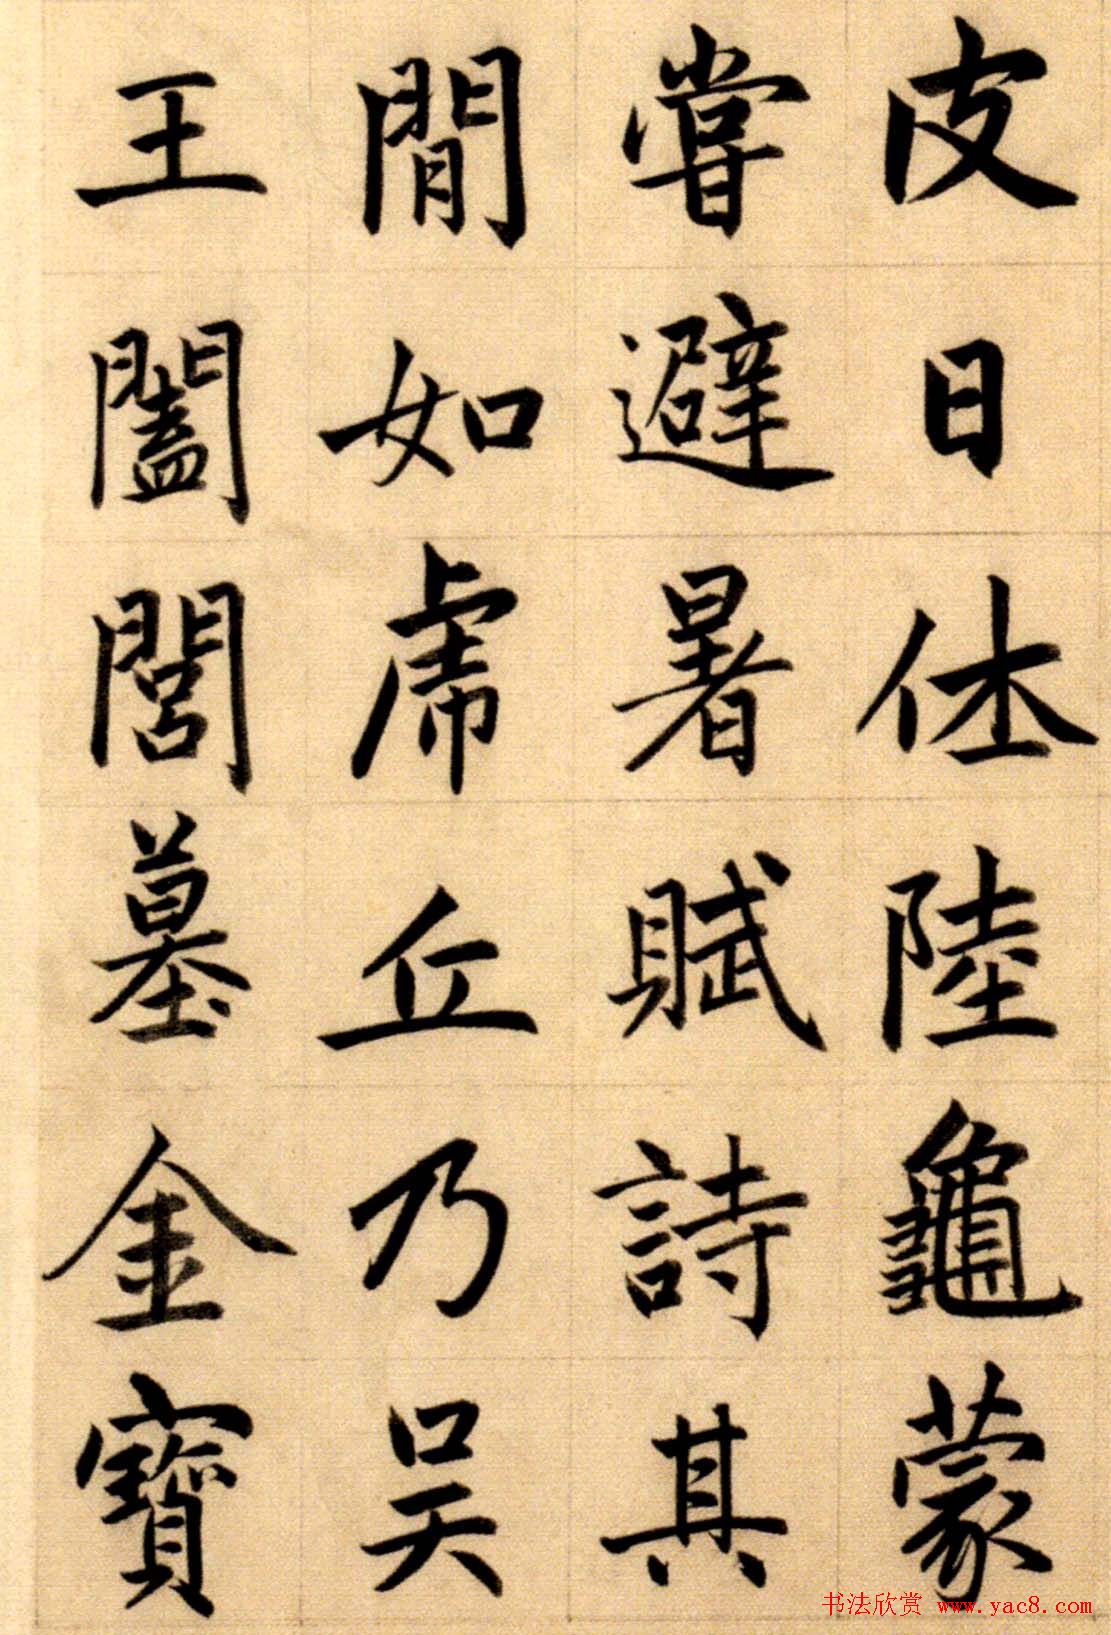 皮日休陸龜蒙
嘗避暑賦詩其
閒如虎丘乃吳
王闔閭墓金寶
书法欣赏 www.yac8.com